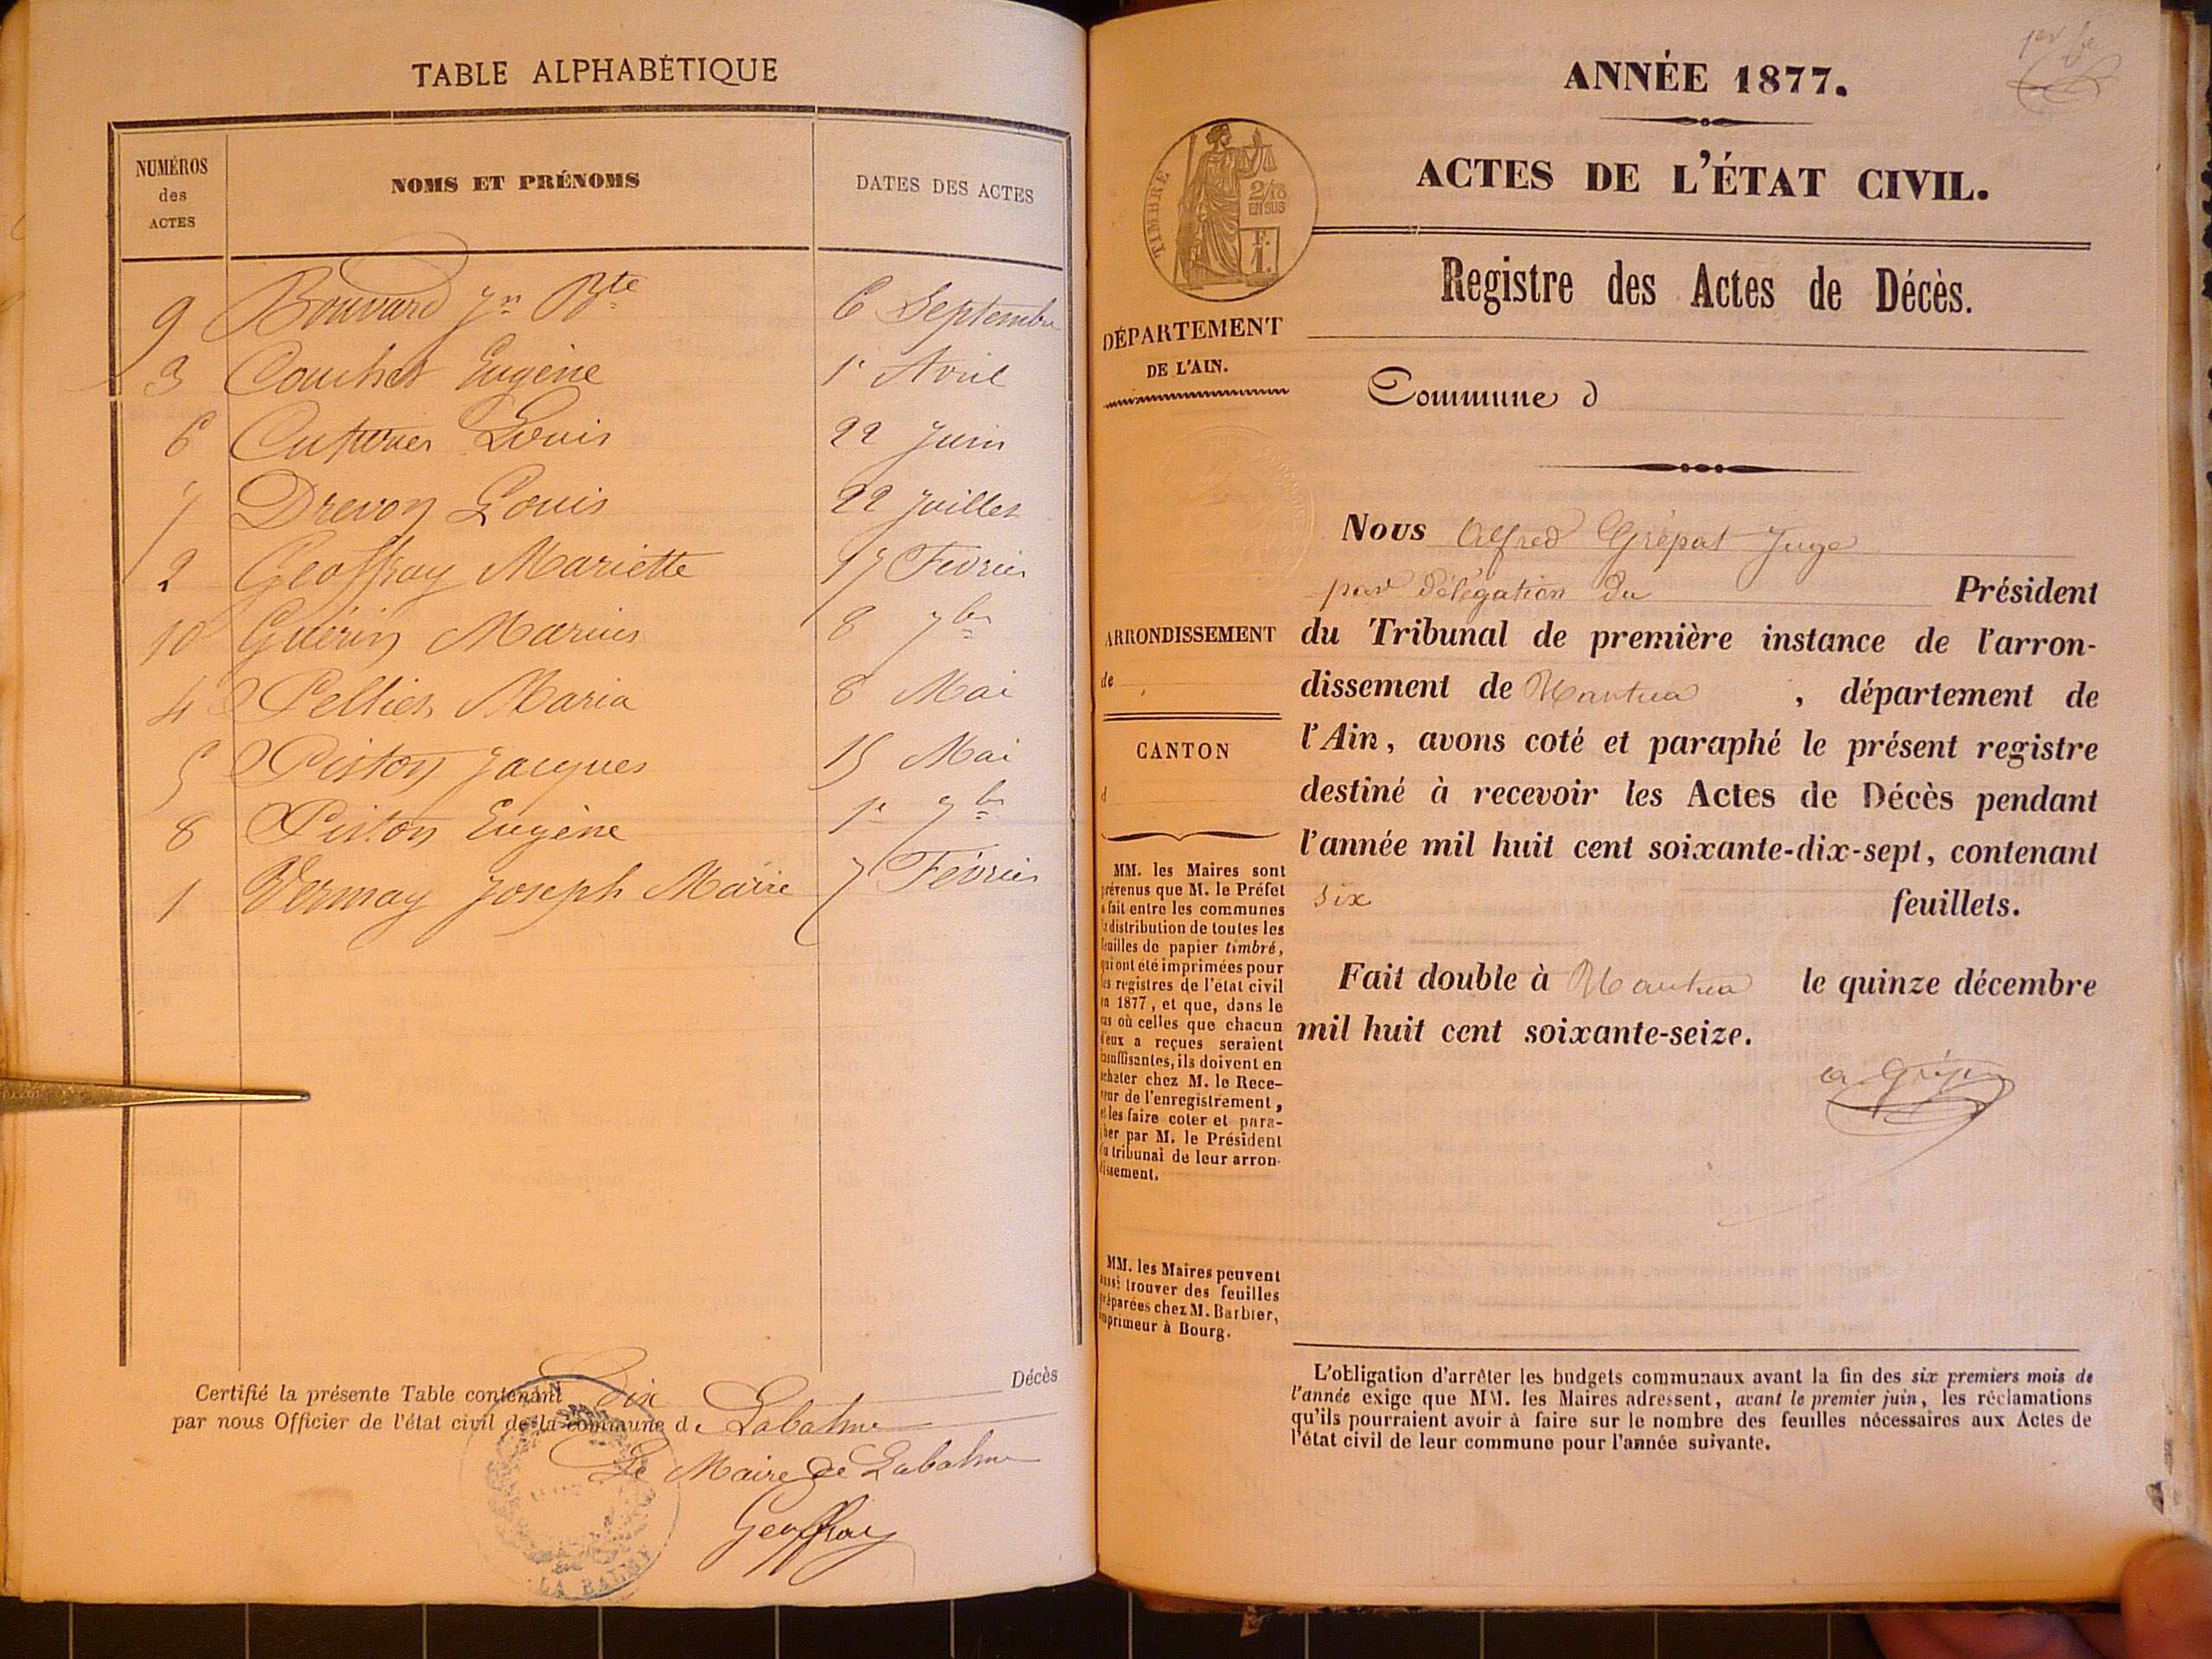 TABLE ALPHABÉTIQUE
NUMÉROS des ACTES
NOMS ET PRÉNOMS
DATES DES ACTES
9 Bouvard Jn Bte 6 Septembre
3 Eugène 1r Avril
6 Louis 22 Juin
7 Drevon Louis 22 Juillet
2 Geoffray Mariette 17 Février
10 Guérin Marius 8 7bre
4 Pellier Maria 8 Mai
5 Piston Jacques 15 Mai
8 Piston Eugène 1r 7bre
1 Vermay Joseph Marie 7 Février
Certifié la présente Table contenant Dix Décès
par nous Officier de l'état civil de la commune de Labalme
Le Maire de Labalme
Geoffray
LA BALME
ANNÉE 1877.
ACTES DE L'ÉTAT CIVIL.
TIMBRE
2/10
EN SUS
F.
1.
Registre des Actes de Décès.
DÉPARTEMENT
DE L'AIN.
Commune d
Nous Alfred Grépat Juge
par délégation du Président
ARRONDISSEMENT
de
du Tribunal de première instance de l'arron-
dissement de Nantua, département de
l'Ain, avons coté et paraphé le présent registre
destiné à recevoir les Actes de Décès pendant
l'année mil huit cent soixante-dix-sept, contenant
six feuillets.
Fait double à Nantua le quinze décembre
mil huit cent soixante-seize.
CANTON
d
MM. les Maires sont
prévenus que M. le Préfet
a fait entre les communes
la distribution de toutes les
feuilles de papier timbré,
qui ont été imprimées pour
les registres de l'état civil
en 1877, et que, dans le
cas où celles que chacun
d'eux a reçues seraient
insuffisantes, ils doivent en
acheter chez M. le Rece-
veur de l'enregistrement,
et les faire coter et para-
pher par M. le Président
du tribunal de leur arron-
dissement.
MM. les Maires peuvent
aussi trouver des feuilles
préparées chez M. Barbier,
imprimeur à Bourg.
L'obligation d'arrêter les budgets communaux avant la fin des six premiers mois de
l'année exige que MM. les Maires adressent, avant le premier juin, les réclamations
qu'ils pourraient avoir à faire sur le nombre des feuilles nécessaires aux Actes de
l'état civil de leur commune pour l'année suivante.